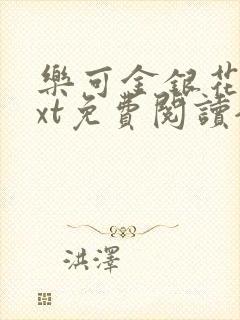 樂可金銀花
xt免費閱讀
洪澤